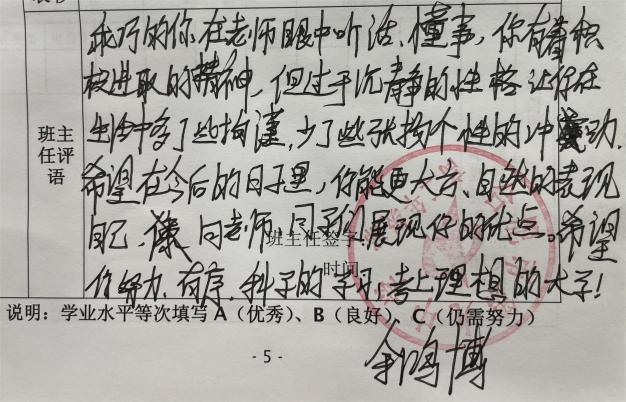 乖巧的你在老师眼中听话、懂事，你有着积
极进取的精神，但过于沉静的性格让你在
生活中多了些拘谨，少了些张扬个性的冲动。
班主
任评
语
希望在今后的日子里，你能更大方、自然的表现
自己，向老师、同学们展现你的优点。希望
班主任签字
你努力、有序、科学的学习，考上理想的大学！
时间
说明：学业水平等次填写 A（优秀）、B（良好）、C（仍需努力）
- 5 -